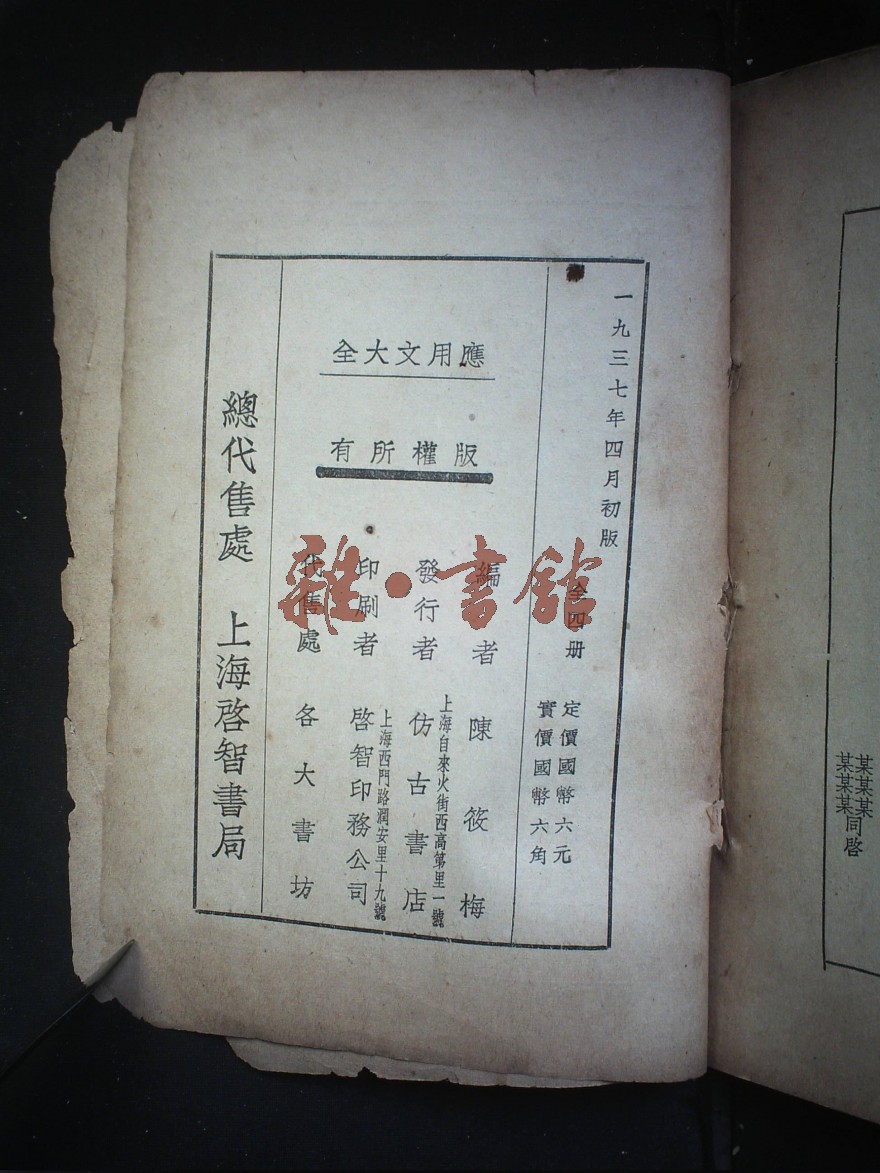 一九三七年四月初版
全四册
定價國幣六元
實價國幣六角
應用文大全
版權所有
編者 陳筱梅
發行者 仿古書店
上海自來火街西高第里一號
印刷者 啓智印務公司
上海西門路潤安里十九號
代售處 各大書坊
總代售處 上海啓智書局
某某某
某某某同啓
雜·書館